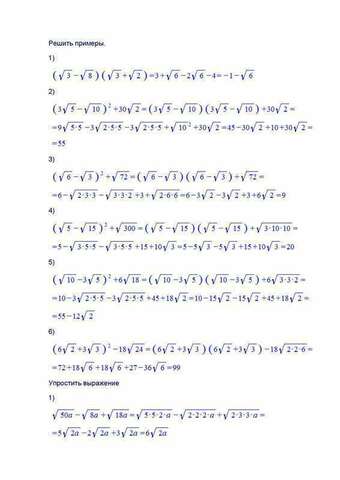 Решить примеры.
1)
(√3−√8)(√3+√2)=3+√6−2√6−4=−1−√6
2)
(3√5−√10)²+30√2=(3√5−√10)(3√5−√10)+30√2=
=9√5·5−3√2·5·5−3√2·5·5+√10²+30√2=45−30√2+10+30√2=
=55
3)
(√6−√3)²+√72=(√6−√3)(√6−√3)+√72=
=6−√2·3·3−√3·3·2+3+√2·6·6=6−3√2−3√2+3+6√2=9
4)
(√5−√15)²+√300=(√5−√15)(√5−√15)+√3·10·10=
=5−√3·5·5−√3·5·5+15+10√3=5−5√3−5√3+15+10√3=20
5)
(√10−3√5)²+6√18=(√10−3√5)(√10−3√5)+6√3·3·2=
=10−3√2·5·5−3√2·5·5+45+18√2=10−15√2−15√2+45+18√2=
=55−12√2
6)
(6√2+3√3)²−18√24=(6√2+3√3)(6√2+3√3)−18√2·2·6=
=72+18√6+18√6+27−36√6=99
Упростить выражение
1)
√50a−√8a+√18a=√5·5·2·a−√2·2·2·a+√2·3·3·a=
=5√2a−2√2a+3√2a=6√2a